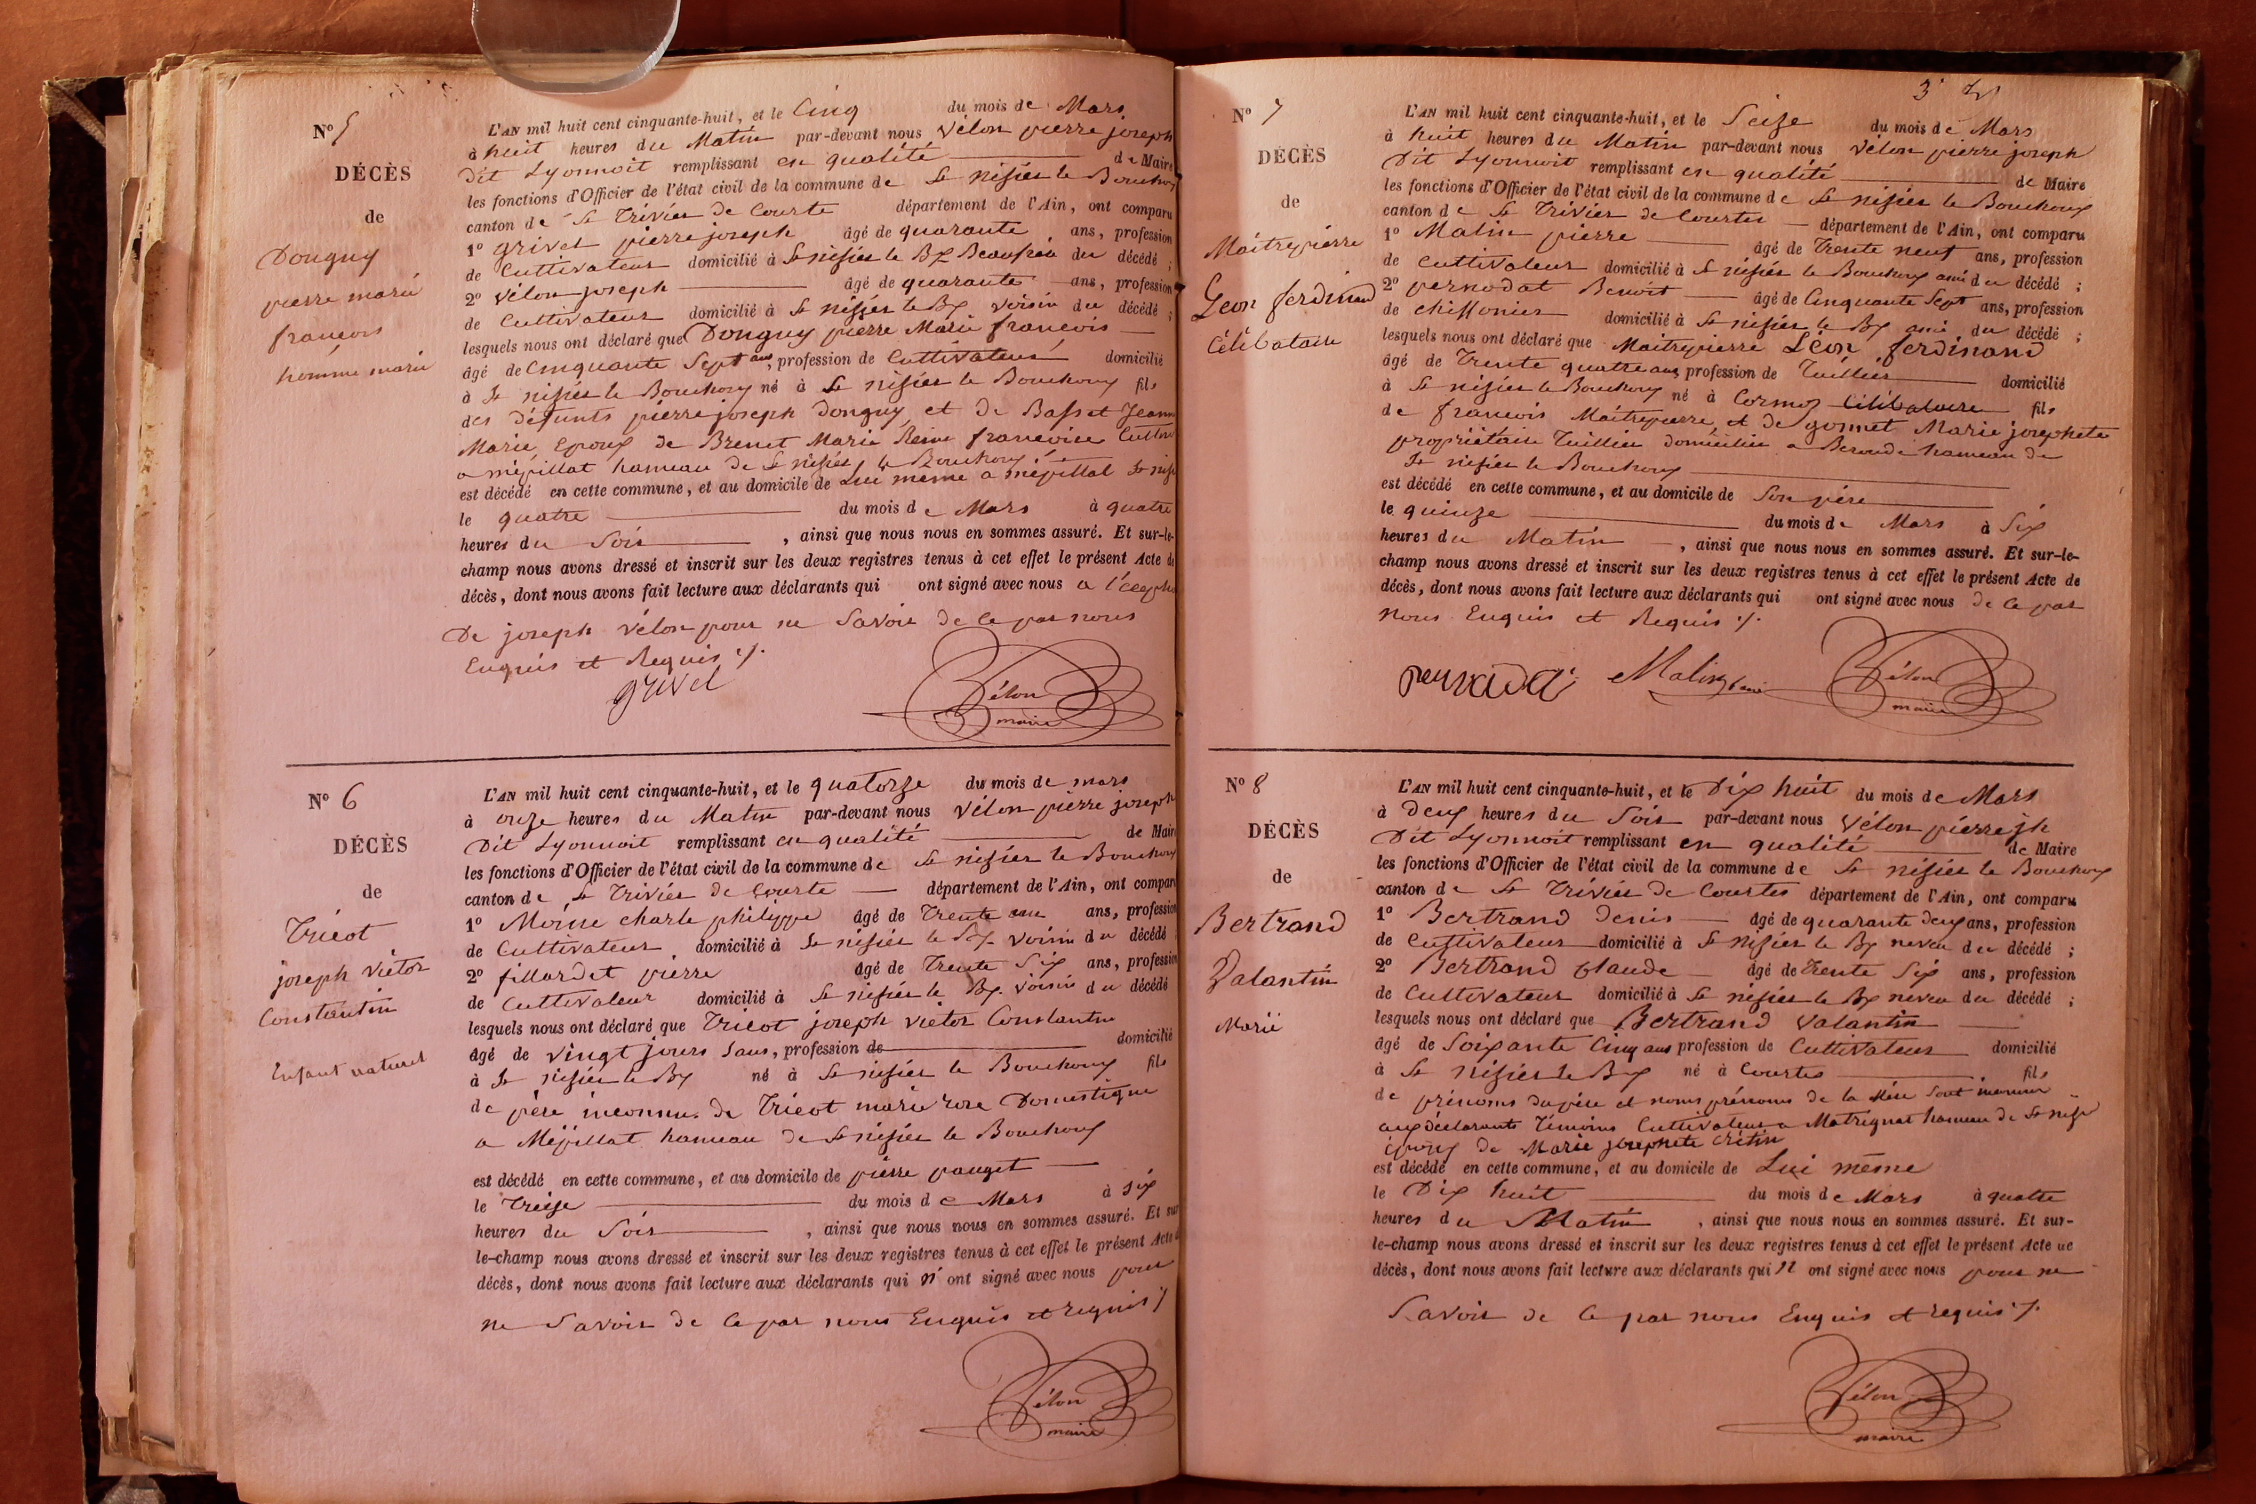 Nº 5
DÉCÈS
de
Donguy
pierre marie
francois
homme marié
L'AN mil huit cent cinquante-huit, et le Cinq du mois de Mars
à huit heures du Matin par-devant nous Vélon pierre joseph
Dit Lyonnoit remplissant en qualité de Maire
les fonctions d'Officier de l'état civil de la commune de St nisier le Bouchoux
canton de St Trivier de Courte département de l'Ain, ont comparu
1º grivel pierre joseph âgé de quarante ans, profession
de Cultivateur domicilié à St nisier le Bx Beaufrère du décédé ;
2º Vélon joseph âgé de quarante ans, profession
de Cultivateur domicilié à St nisier le Bx Voisin du décédé ;
lesquels nous ont déclaré que Donguy pierre Marie francois
âgé de Cinquante Sept ans, profession de Cultivateur domicilié
à St nisier le Bouchoux né à St nisier le Bouchoux fils
des défunts pierre joseph Donguy et de Basset Jeanne
Marie, Epoux de Brenet Marie Reine francoise
a mépillat hameau de St nisier le Bouchoux
est décédé en cette commune, et au domicile de Lui même a mépillat St
le quatre du mois de Mars à quatre
heures du Soir , ainsi que nous nous en sommes assuré. Et sur-le-
champ nous avons dressé et inscrit sur les deux registres tenus à cet effet le présent Acte de
décès, dont nous avons fait lecture aux déclarants qui ont signé avec nous a
De joseph Vélon pour ne Savoir de ce par nous
Enquis et Requis ./.
grivel
Vélon
maire
Nº 6
DÉCÈS
de
Tricot
joseph victor
Constantin
Enfant naturel
L'AN mil huit cent cinquante-huit, et le quatorze du mois de mars
à onze heures du Matin par-devant nous Vélon pierre joseph
Dit Lyonnoit remplissant en qualité de Maire
les fonctions d'Officier de l'état civil de la commune de St nisier le Bouchoux
canton de St Trivier de Courte département de l'Ain, ont comparu
1º charle philippe âgé de Trente ans, profession
de Cultivateur domicilié à St nisier le Bx Voisin du décédé
2º fillardet pierre âgé de Trente Six ans, profession
de Cultivateur domicilié à St nisier le Bx Voisin du décédé
lesquels nous ont déclaré que Tricot joseph victor Constantin
âgé de vingt jours Sans, profession de domicilié
à St nisier le Bx né à St nisier le Bouchoux fils
de père inconnu. de Tricot marie rose Domestique
a Mépillat hameau de St nisier le Bouchoux
est décédé en cette commune, et au domicile de pierre pauget
le Treize du mois de Mars à Six
heures du Soir , ainsi que nous nous en sommes assuré. Et sur
le-champ nous avons dressé et inscrit sur les deux registres tenus à cet effet le présent Acte
décès, dont nous avons fait lecture aux déclarants qui n' ont signé avec nous pour
ne Savoir de ce par nous Enquis et requis ./.
Vélon
maire
3
Nº 7
DÉCÈS
de
Maitrepierre
Leon ferdinand
Célibataire
L'AN mil huit cent cinquante-huit, et le Seize du mois de Mars
à huit heures du Matin par-devant nous Vélon pierre joseph
Dit Lyonnoit remplissant en qualité de Maire
les fonctions d'Officier de l'état civil de la commune de St nisier le Bouchoux
canton de St Trivier de Courtes département de l'Ain, ont comparu
1º Malin pierre âgé de Trente neuf ans, profession
de Cultivateur domicilié à St nisier le Bouchoux ami du décédé ;
2º pernodat Benoit âgé de Cinquante Sept ans, profession
de chiffonier domicilié à St nisier le Bx ami du décédé ;
lesquels nous ont déclaré que Maitrepierre Léon ferdinand
âgé de Trente quatre ans profession de Tuillier domicilié
à St nisier le Bouchoux né à Cormoz Célibataire fils
de francois Maitrepierre, et de gonnet Marie josephete
propriétaire Tuillier domicilié a hameau de
St nisier le Bouchoux
est décédé en cette commune, et au domicile de Son père
le quinze du mois de Mars à Six
heures du Matin , ainsi que nous nous en sommes assuré. Et sur-le-
champ nous avons dressé et inscrit sur les deux registres tenus à cet effet le présent Acte de
décès, dont nous avons fait lecture aux déclarants qui ont signé avec nous de ce par
nous Enquis et Requis ./.
Malin
Vélon
maire
Nº 8
DÉCÈS
de
Bertrand
Valantin
Marié
L'AN mil huit cent cinquante-huit, et le Dix huit du mois de Mars
à deux heures du Soir par-devant nous Vélon pierre jh
Dit Lyonnoit remplissant en qualité de Maire
les fonctions d'Officier de l'état civil de la commune de St nisier le Bouchoux
canton de St Trivier de Courtes département de l'Ain, ont comparu
1º Bertrand denis âgé de quarante deux ans, profession
de Cultivateur domicilié à St nisier le Bx neveu du décédé ;
2º Bertrand Claude âgé de Trente Six ans, profession
de Cultivateur domicilié à St nisier le Bx neveu du décédé ;
lesquels nous ont déclaré que Bertrand Valantin
âgé de Soixante Cinq ans profession de Cultivateur domicilié
à St nisier le Bx né à Courtes fils
de prénoms du père et noms prénoms de la Mère Sont inconnu
aux déclarants Témoins Cultivateur a Matrignat hameau de St
époux de Marie josephete Crétin
est décédé en cette commune, et au domicile de Lui même
le Dix huit du mois de Mars à quatre
heures du Matin , ainsi que nous nous en sommes assuré. Et sur-
le-champ nous avons dressé et inscrit sur les deux registres tenus à cet effet le présent Acte de
décès, dont nous avons fait lecture aux déclarants qui n' ont signé avec nous pour ne
Savoir de ce par nous Enquis et requis ./.
Vélon
maire